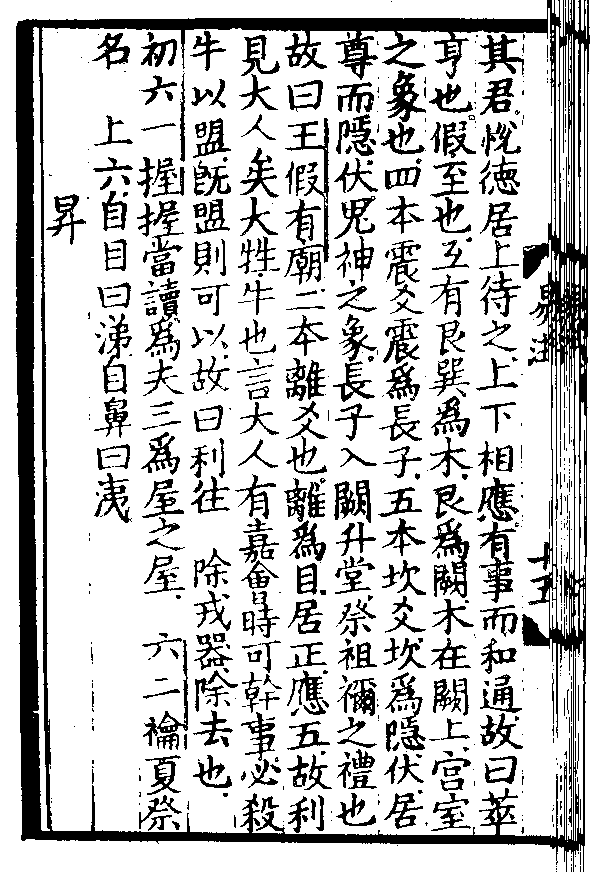 其君悅德居上待之上下相應有事而和通故曰萃
亨也假至也互有艮巽巽為木艮為闕木在闕上宫室
之象也四本震爻震為長子五本坎爻坎為隱伏居
尊而隱伏鬼神之象長子入闕升堂祭祖禰之禮也
故曰王假有廟二本離爻也離為目居正應五故利
見大人矣大牲牛也言大人有嘉會時可幹事必殺
牛以盟旣盟則可以故曰利往　除戎器除去也
初六一握握當讀為夫三為屋之屋　六二禴夏祭
名　上六自目曰涕自鼻曰洟
昇
易注
十五